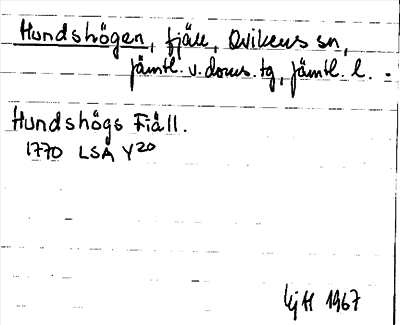 Hundshögen, fjäll, Ovikens sn,
Jämtl. v. doms. tg, Jämtl. l.
Hundshögs Fiäll.
1770 LSA Y20
1967